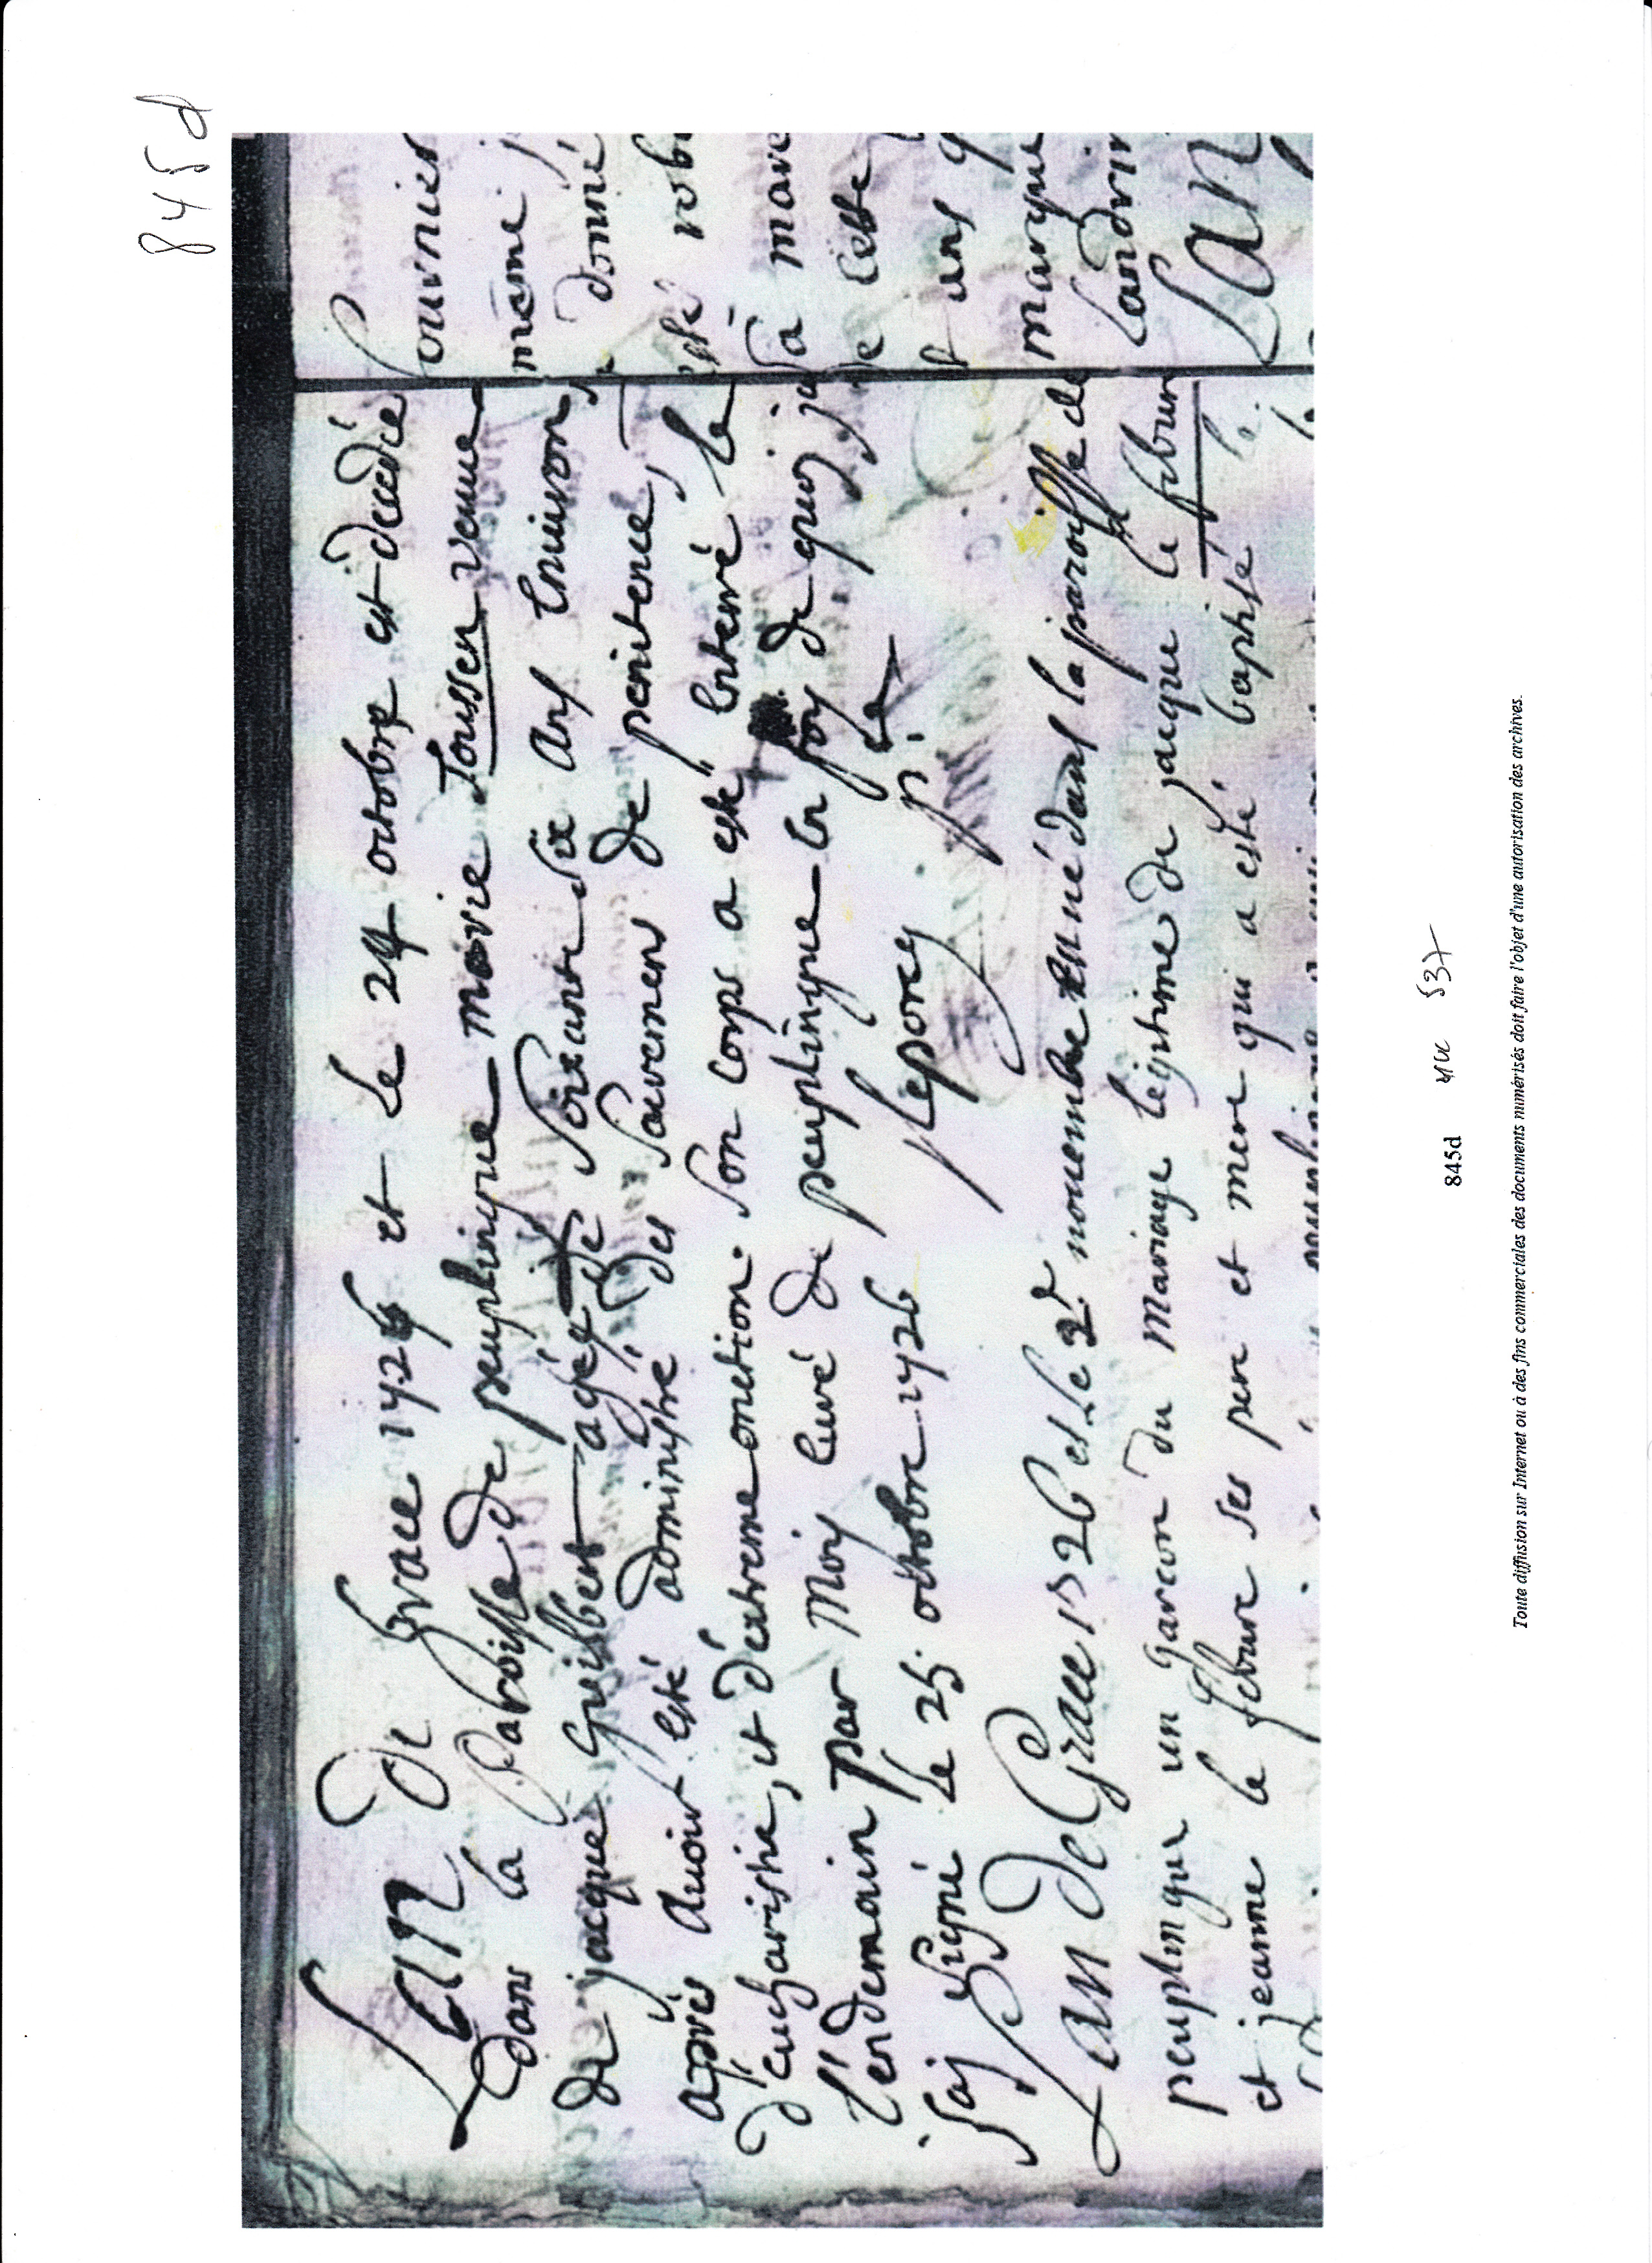 845d
L'an de Grace 1726 et le 24 octobre est decedé
dans la Paroisse de peuplingue marie Toussen veuve
de jacque Grisbert agée de Soixante Six ans Enuiron
apres Auoir esté administré des Sacremens de penitence,
d'eucharistie, et d'extreme onction. Son corps a esté Enterré le
l'endemain par Moy Curé de peuplingue En foy de quoy
j'ay Signé le 25 octobre 1726
L'an de Grace 1726 et le 2e nouembre est né dans la paroisse de
peuplingue un garcon du Mariage legitime de jacque le febure
et jeanne le febure ses pere et mere qui a esté baptisé le
ouvrier
méme
donné
esté
Sa
cette
ans
marque
Landrin
L'an
845d
537
Toute diffusion sur Internet ou à des fins commerciales des documents numérisés doit faire l'objet d'une autorisation des archives.